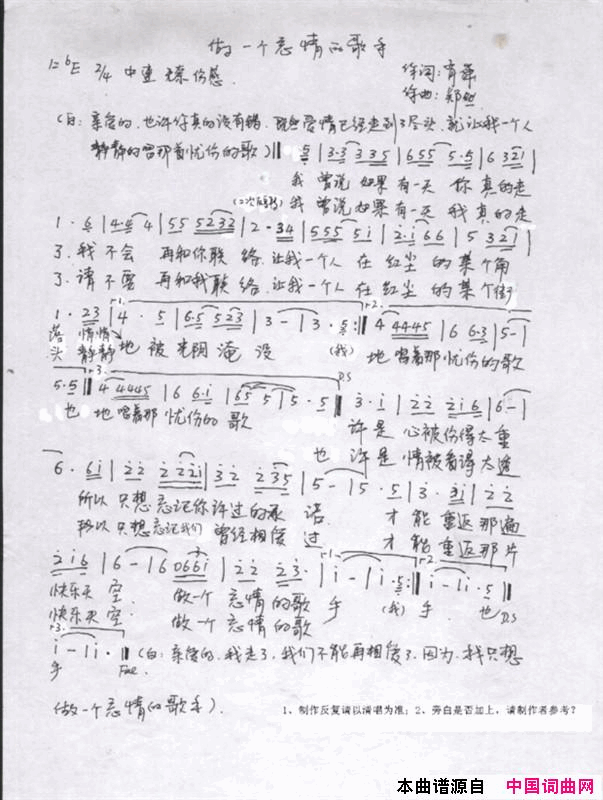 做一个忘情的歌手
1=ᵇE 2/4 中速 无奈伤感
作词:育
作曲:郑
(白: 亲爱的,也许你真的没有错,既然爱情已经走到了尽头,就让我一个人
静静的唱那首忧伤的歌)‖ 5 | 3·3 3 3 5 | 6 5 5 5·5 | 6 3 2 1 |
我 曾说 如果 有一天 你 真的走
(二次反复) 我 曾说 如果 有一天 我 真的走
1 · 6 | 4·4 4 | 5 5 5 2 3 2 | 2 - 3 4 | 5 5 5 5 i | 2·i 6 6 | 5 3 2 1 |
了,我 不会 再和你联 络,让我一个人 在 红尘 的 某个角
了,请 不要 再和我联 络,让我一个人 在 红尘 的 某个街
1 · 2 3 | 4 · 5 | 6·5 5 2 3 | 3 - | 3 · 5 :‖ 4 4 4 4 5 | 6 6·3 | 5 - |
落 悄悄 地 被 光阴 淹 没 (我) 地 唱着那 忧伤的歌
头 静静
5·5 ‖ 4 4 4 4 5 | 6 6·i | 6 5 5 | 5 · 5 ‖ 3 · i | 2 2 2 i 6 | 6 - |
D.S
也 地 唱着那 忧伤的 歌 许 是 心被伤得太重
也 许 是 情被看得太透
6 · 6 i | 2 2 2 2 2 i | 3 2 2 3 5 | 5 - | 5 · 5 | 3 · 3 i | 2 2 |
所以 只想 忘记你许过的承 诺 才 能 重返 那遍
所以 只想 忘记我们 曾经相爱 过 才 能 重返 那片
2 i 6 | 6 - | 6 0 6 6 i | 2 2 2 3 · | i - | i · 5 :‖ i - | i · 5 ‖
快乐天 空 做一个 忘情 的歌 手 (我) 手 也 D.S
快乐天 空 做一个 忘情 的歌
i - | i · ‖ (白: 亲爱的,我走了,我们不能再相爱了,因为,我只想
手 Fine
做一个忘情的歌手).
1、制作反复请以清唱为准; 2、旁白是否加上,请制作者参考?
本曲谱源自 中国词曲网